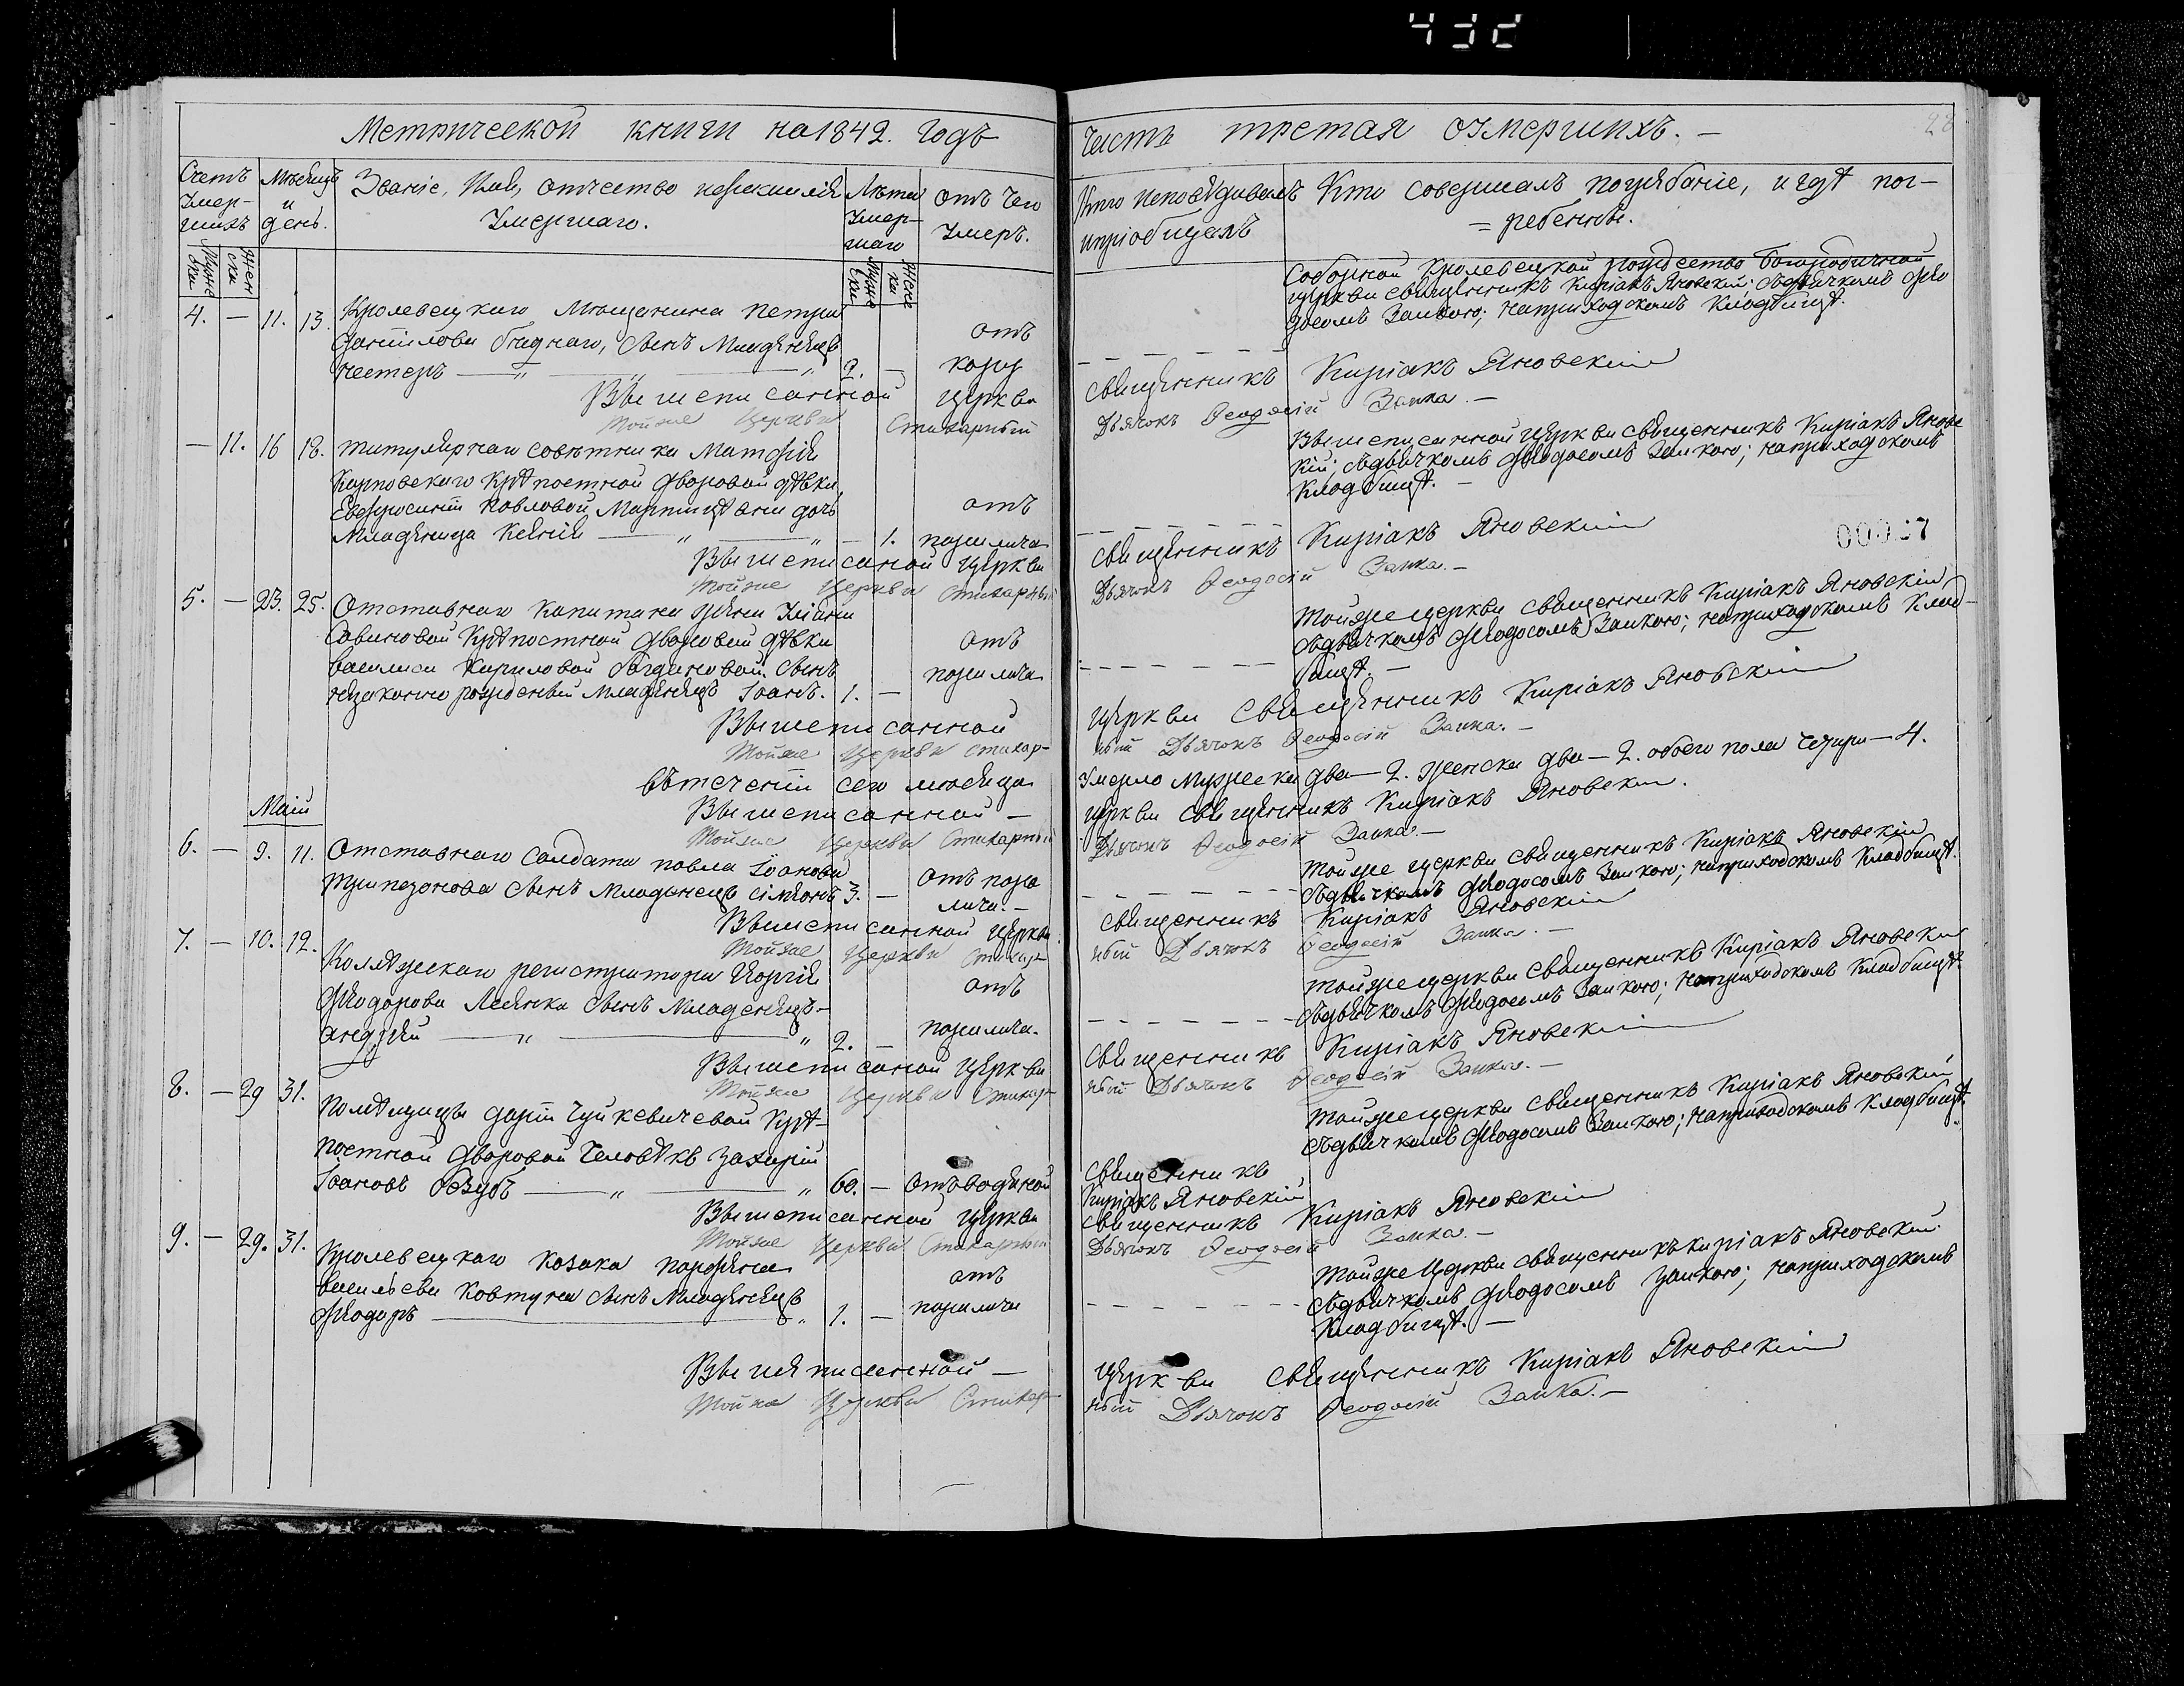 432
Метрической книги на 1842. годъ
часть третая оумершихъ. —
28
Счетъ Умер- шихъ
Мѣсяцъ и день.
Званіе, Имя, отчество ифамилія Умершаго.
Лѣта Умер- шаго
отъ чего Умеръ.
Кто исповѣдывалъ ипріобщалъ
Кто совершалъ погрѣбаніе, и гдѣ пог-
= ребенны.
Мужс ски
Жен ски
Мужс ски
Женс ки
4. — 11. 13. Кролевецкаго Мѣщанина петра
Даніилова бѣднаго, сынъ Младѣнецъ
нестеръ — „ — „ — „ 2. —
отъ
кору
Соборной Кролевецкой рождество богородичной
церкви священникъ Киріакъ Яновскій; съдьячкомъ Фео
досомъ Заикою; наприходскомъ кладбищѣ.
Вышеписанной церкви
священникъ Киріакъ Яновскій
Тойже Церкви Стихарный
Дьячокъ Ѳеодосій Заика. —
— 11. 16 18. титулярнаго совѣтника Матфія
Карповскаго крѣпостной дворовой дѣвки
Евфросиніи павловой дочь
Младѣница Ксенія — „ — „ — 1.
отъ
паралича
Вышеписанной церкви священникъ Киріакъ Яновс
кій; съдьячкомъ Феодосомъ Заикою; наприходскомъ
кладбищѣ. —
Вышеписаной церкви
священникъ Киріакъ Яновскій
Тойже Церкви Стихарный
Дьячокъ Ѳеодосій Заика. —
5. — 23. 25. Отставнаго капитана жѣни Уліани
Савиновой крѣпостной дворовой дѣвки
василиси Кириловой сынъ
незаконно рожденный младѣнецъ Іоанъ. 1. —
отъ
паралича
тойже церкви священникъ Киріакъ Яновскій
съдьячкомъ Феодосомъ Заикою; наприходскомъ клад-
бищѣ. —
Вышеписанной
церкви священникъ Киріакъ Яновскій
Тойже Церкви стихар-
ный Дьячокъ Ѳеодосій Заика. —
вътеченіи сего мѣсяца
умерло мужеска два — 2. женска два — 2. обоего пола четири — 4.
Вышеписанной —
церкви священникъ Киріакъ Яновскій.
Тойже Церкви Стихарный
Дьячокъ Ѳеодосій Заика. —
Маій
6. — 9. 11. Отставнаго салдата павла Іоанова
сынъ младѣнецъ сімѣонъ 3. —
отъ пара
лича. —
тойже церкви священникъ Киріакъ Яновскій
съдьячкомъ Феодосомъ Заикою; наприходскомъ кладбищѣ.
Вышеписанной церкви
священникъ Киріакъ Яновскій
Тойже Церкви Стихар-
ный Дьячокъ Ѳеодосій Заика. —
7. — 10. 12. Колѣжскаго регистратора Георгія
Феодорова Лесѣнка сынъ младенецъ —
андрѣй — „ — „ 2. —
отъ
паралича.
тойже церкви священникъ Киріакъ Яновскій
съдьячкомъ Феодосомъ Заикою; наприходскомъ кладбищѣ.
Вышеписаной церкви
священникъ Киріакъ Яновскій
Тойже Церкви Стихар-
ный Дьячокъ Ѳеодосій Заика. —
8. — 29 31. помѣщицы даріи Чуйкевичевой крѣ-
постной дворовой человѣкъ захарій
Іоановъ Безубъ — „ — „ 60. —
отъводяной
Священникъ
Киріакъ Яновскій
тойже церкви священникъ Киріакъ Яновскій
съдьячкомъ Феодосомъ Заикою; наприходскомъ кладбищѣ.
Вышеписанной церкви
священникъ Киріакъ Яновскій
Тойже Церкви Стихарный
Дьячокъ Ѳеодосій Заика. —
9. — 29. 31. Кролевецкаго козака парфѣна
васильева Ковтуна сынъ Младѣнецъ
Феодоръ — „ 1. —
отъ
паралича
тойже Церкви священникъ киріакъ Яновскій.
съдьячкомъ Феодосомъ Заикою; наприходскомъ
кладбищѣ. —
Вышеписанной —
церкви священникъ Киріакъ Яновскій
Тойже Церкви Стихар-
ный Дьячокъ Ѳеодосій Заика. —